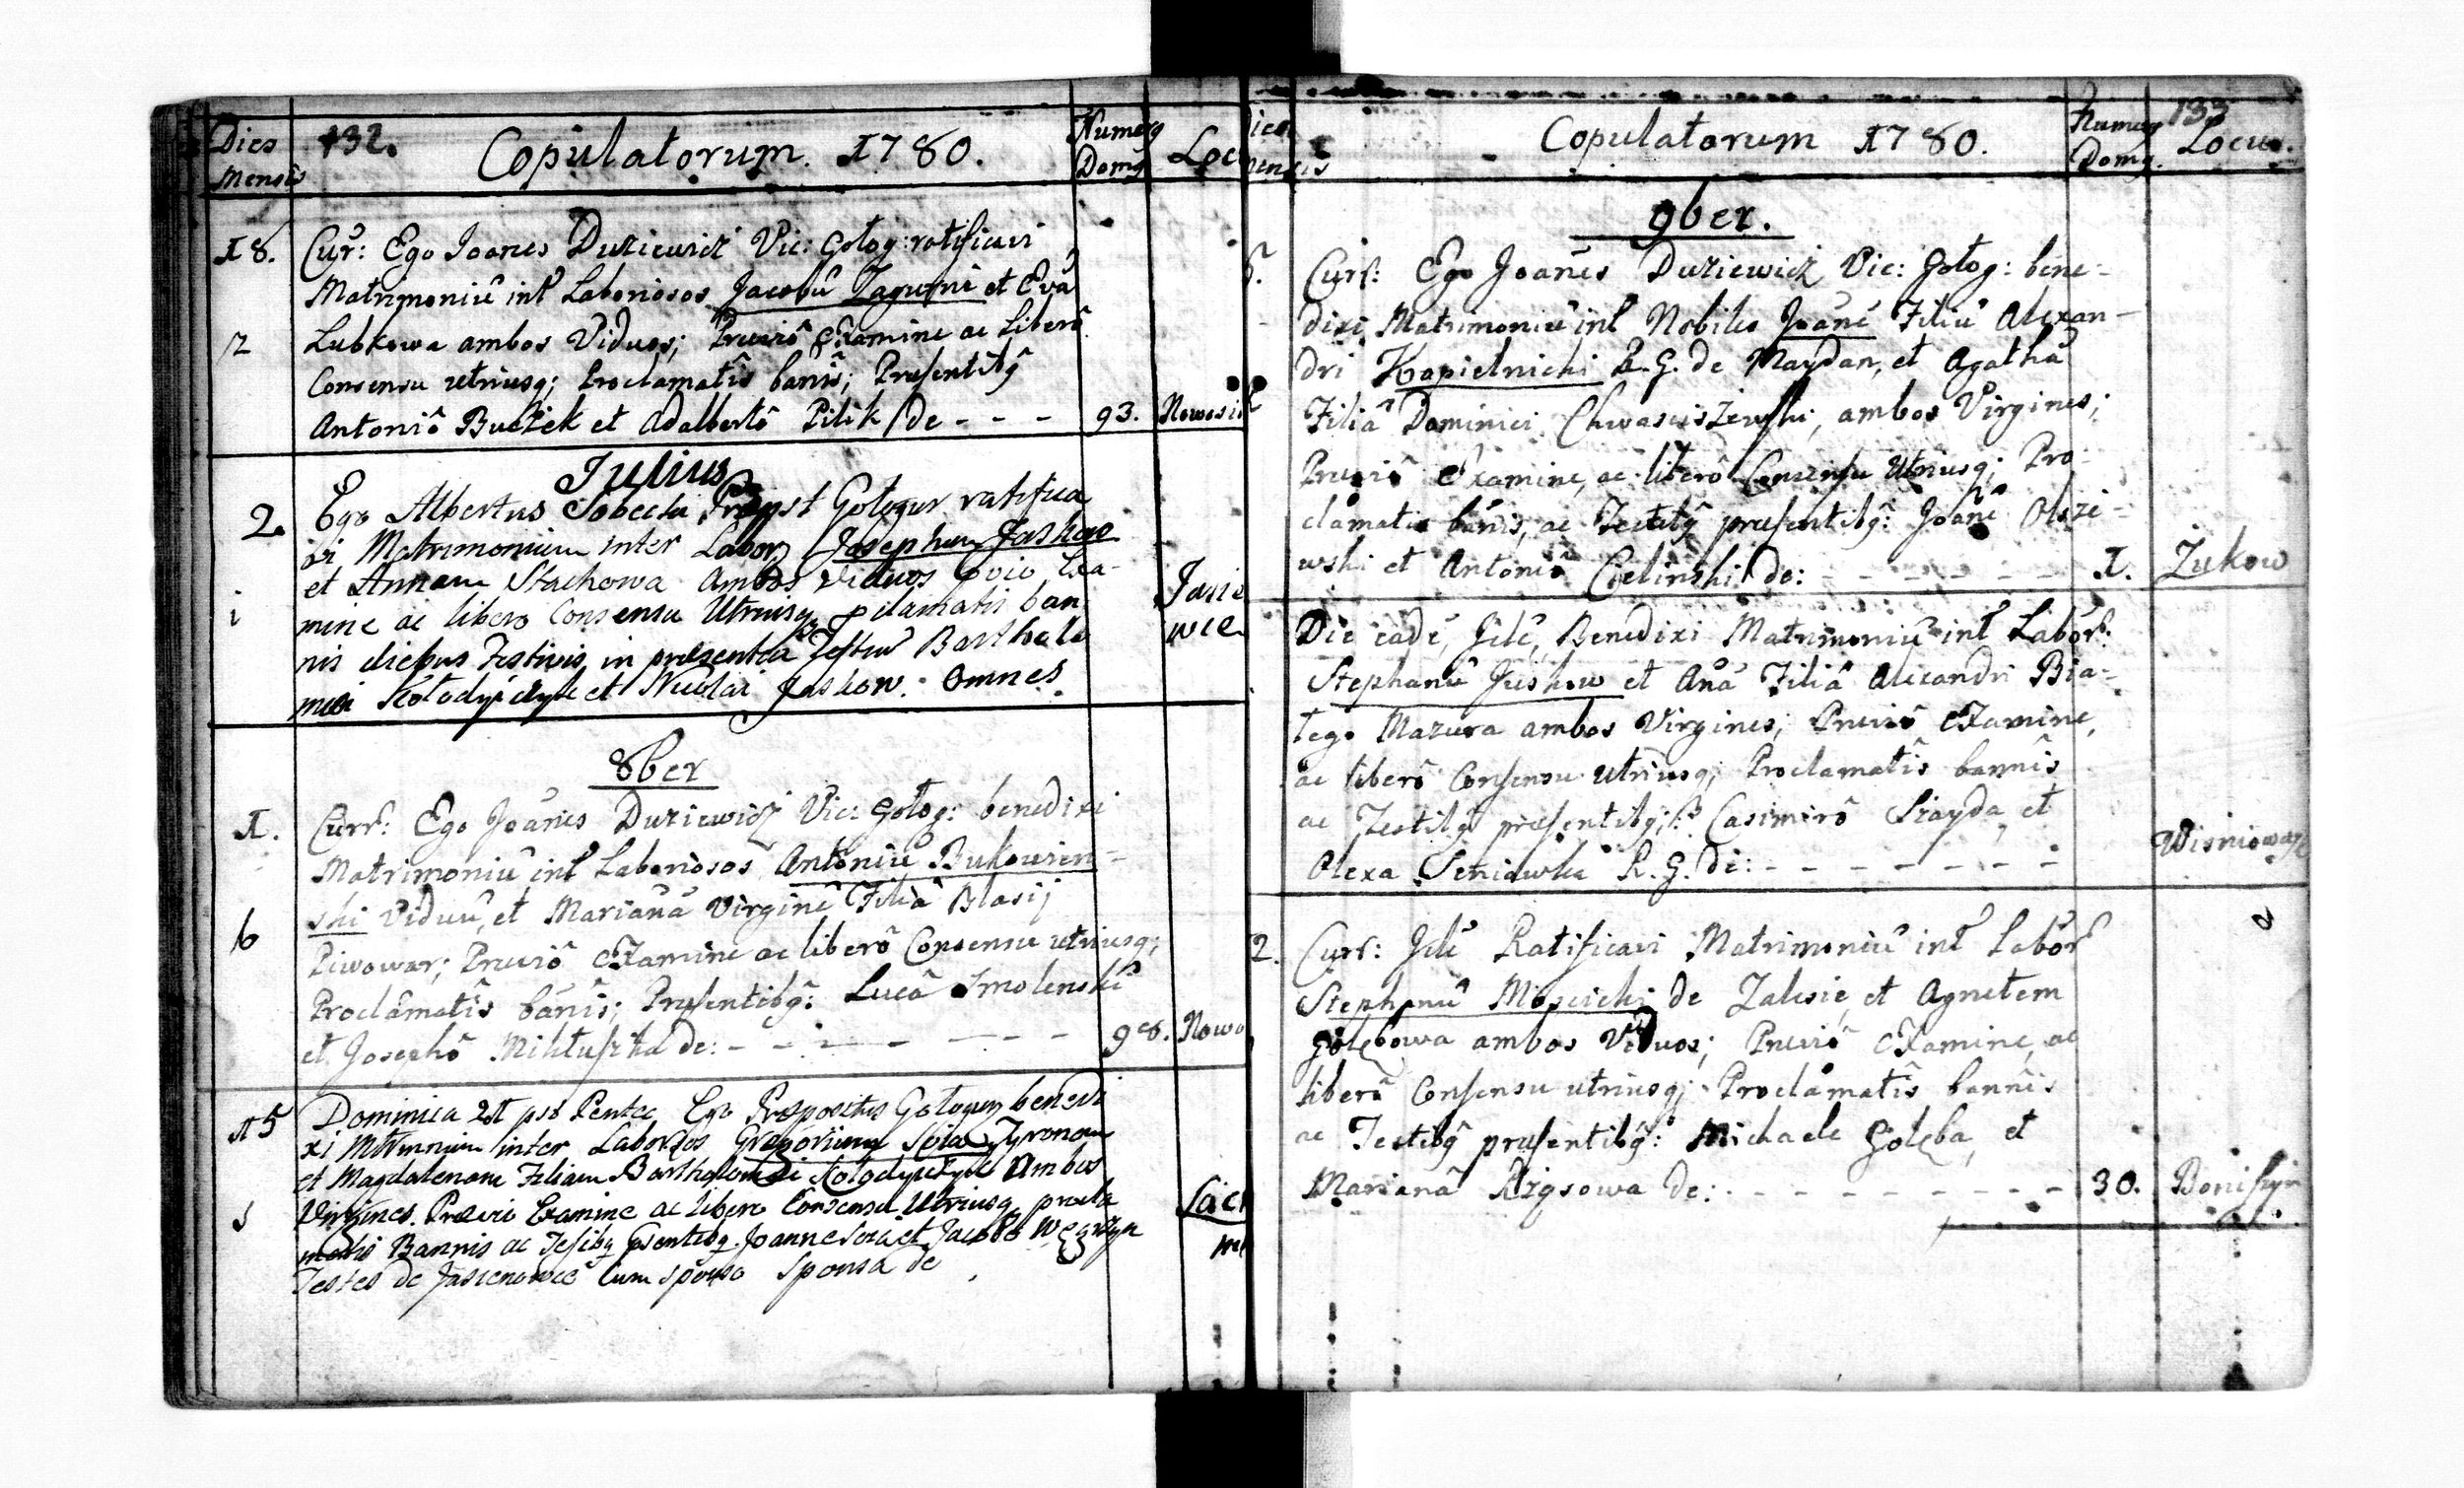 Dies Mensis
132.
Copulatorum. 1780.
Numerg Domg
Loc
18.
Cur̃: Ego Joanes Duziewicz Vic: Gołog: ratificavi
Matrimoniũ int̃ Laboriosos Jacobũ Zagurni et Evã
Lubkowa ambos Viduos; Previô Examine ac Liberô
Consensu utriusq; Proclamatîs banîs; Presentibg
Antoniô Buczek et Adalbertô Pilik de - - - 93. Nowosiół
Julius
2. Ego Albertus Sobecki Prepst Gołogur ratifica
vi Matrimonium inter Labor Josephum Jaskow
et Annam Stachowa Ambos Viduos pvio Exa-
mine ac libero Consensu Utriusq pclamatis ban
nis diebus Festivis in praesentia Testiũ Bartholo
mei Kołodyiczyk et Nicolai Jaskow. Omnes
8ber
1. Curr̃: Ego Joãnes Duziewicz Vic: Gołog: benedixi
Matrimoniũ int̃ Laboriosos Antoniũ Bukowien-
ski Viduũ, et Marianã Virginẽ Filiã Blasij
Piwowar; Previô Examine ac liberô Consensu utriusq;
Proclamatîs banîs; Presentibg: Lucâ Smolenski
et Josephô Mikłuszka de: - - - - - - - 98. Nowo
15 Dominica 22 pst Pentec Ego Prepositus Gologury benedi
xi Mtrimnium inter Laboriosos Gregorium
et Magdalenam Filiam Bartholomei Kołodyiczyk Ambos
Virgines. Praevio Examine ac libero Consensu Utriusq procla
matis Bannis ac Tesibq psentibq. Joanne et Jacobo Węgrzyn
Testes de Jasienowce Cum sponso Sponsa de
Copulatorum 1780.
Numerg Domg.
133
Locus.
9ber.
Curr̃: Ego Joãnes Duziewicz Vic: Gołog: bene-
dixi Matrimoniũ int̃ Nobiles Joanẽ Filiũ Alexan-
dri Kopielnicki R. G. de Maydan, et Agathã
Filiã Dominici Chwasciszewski, ambos Virgines;
Previô Examine, ac liberô Consensu Utriusq; Pro-
clamatis banîs, ac Testibg presentibg: Joanẽ Olszi-
wski et Antoniô Cielinski de: - - - - - - 1. Zukow
Die eadẽ, Idẽ, Benedixi Matrimoniũ int̃ Labor̃:
Stephanũ Juskow et Anã Filiã Alexandri Bia-
łego Mazura ambos Virgines; Previô Examine,
ac liberô Consensu utriusq; Proclamatîs bannîs
ac Testibg presentibg: Casimirô Szayda, et
Olexa Seniawka R. G. de: - - - - - - - -
2. Curr̃: Idẽ Ratificavi Matrimoniũ int̃ Labor̃
Stephanũ Moscicki de Zalesie, et Agnetem
Gołębowa ambos Viduos; Previô Examine, ac
liberô Consensu utriusq; Proclamatîs bannîs
ac Testibg presentibg: Michaele Gołęba, et
Marianâ Rzqsowa de: - - - - - - - - - 30. Boniszyn